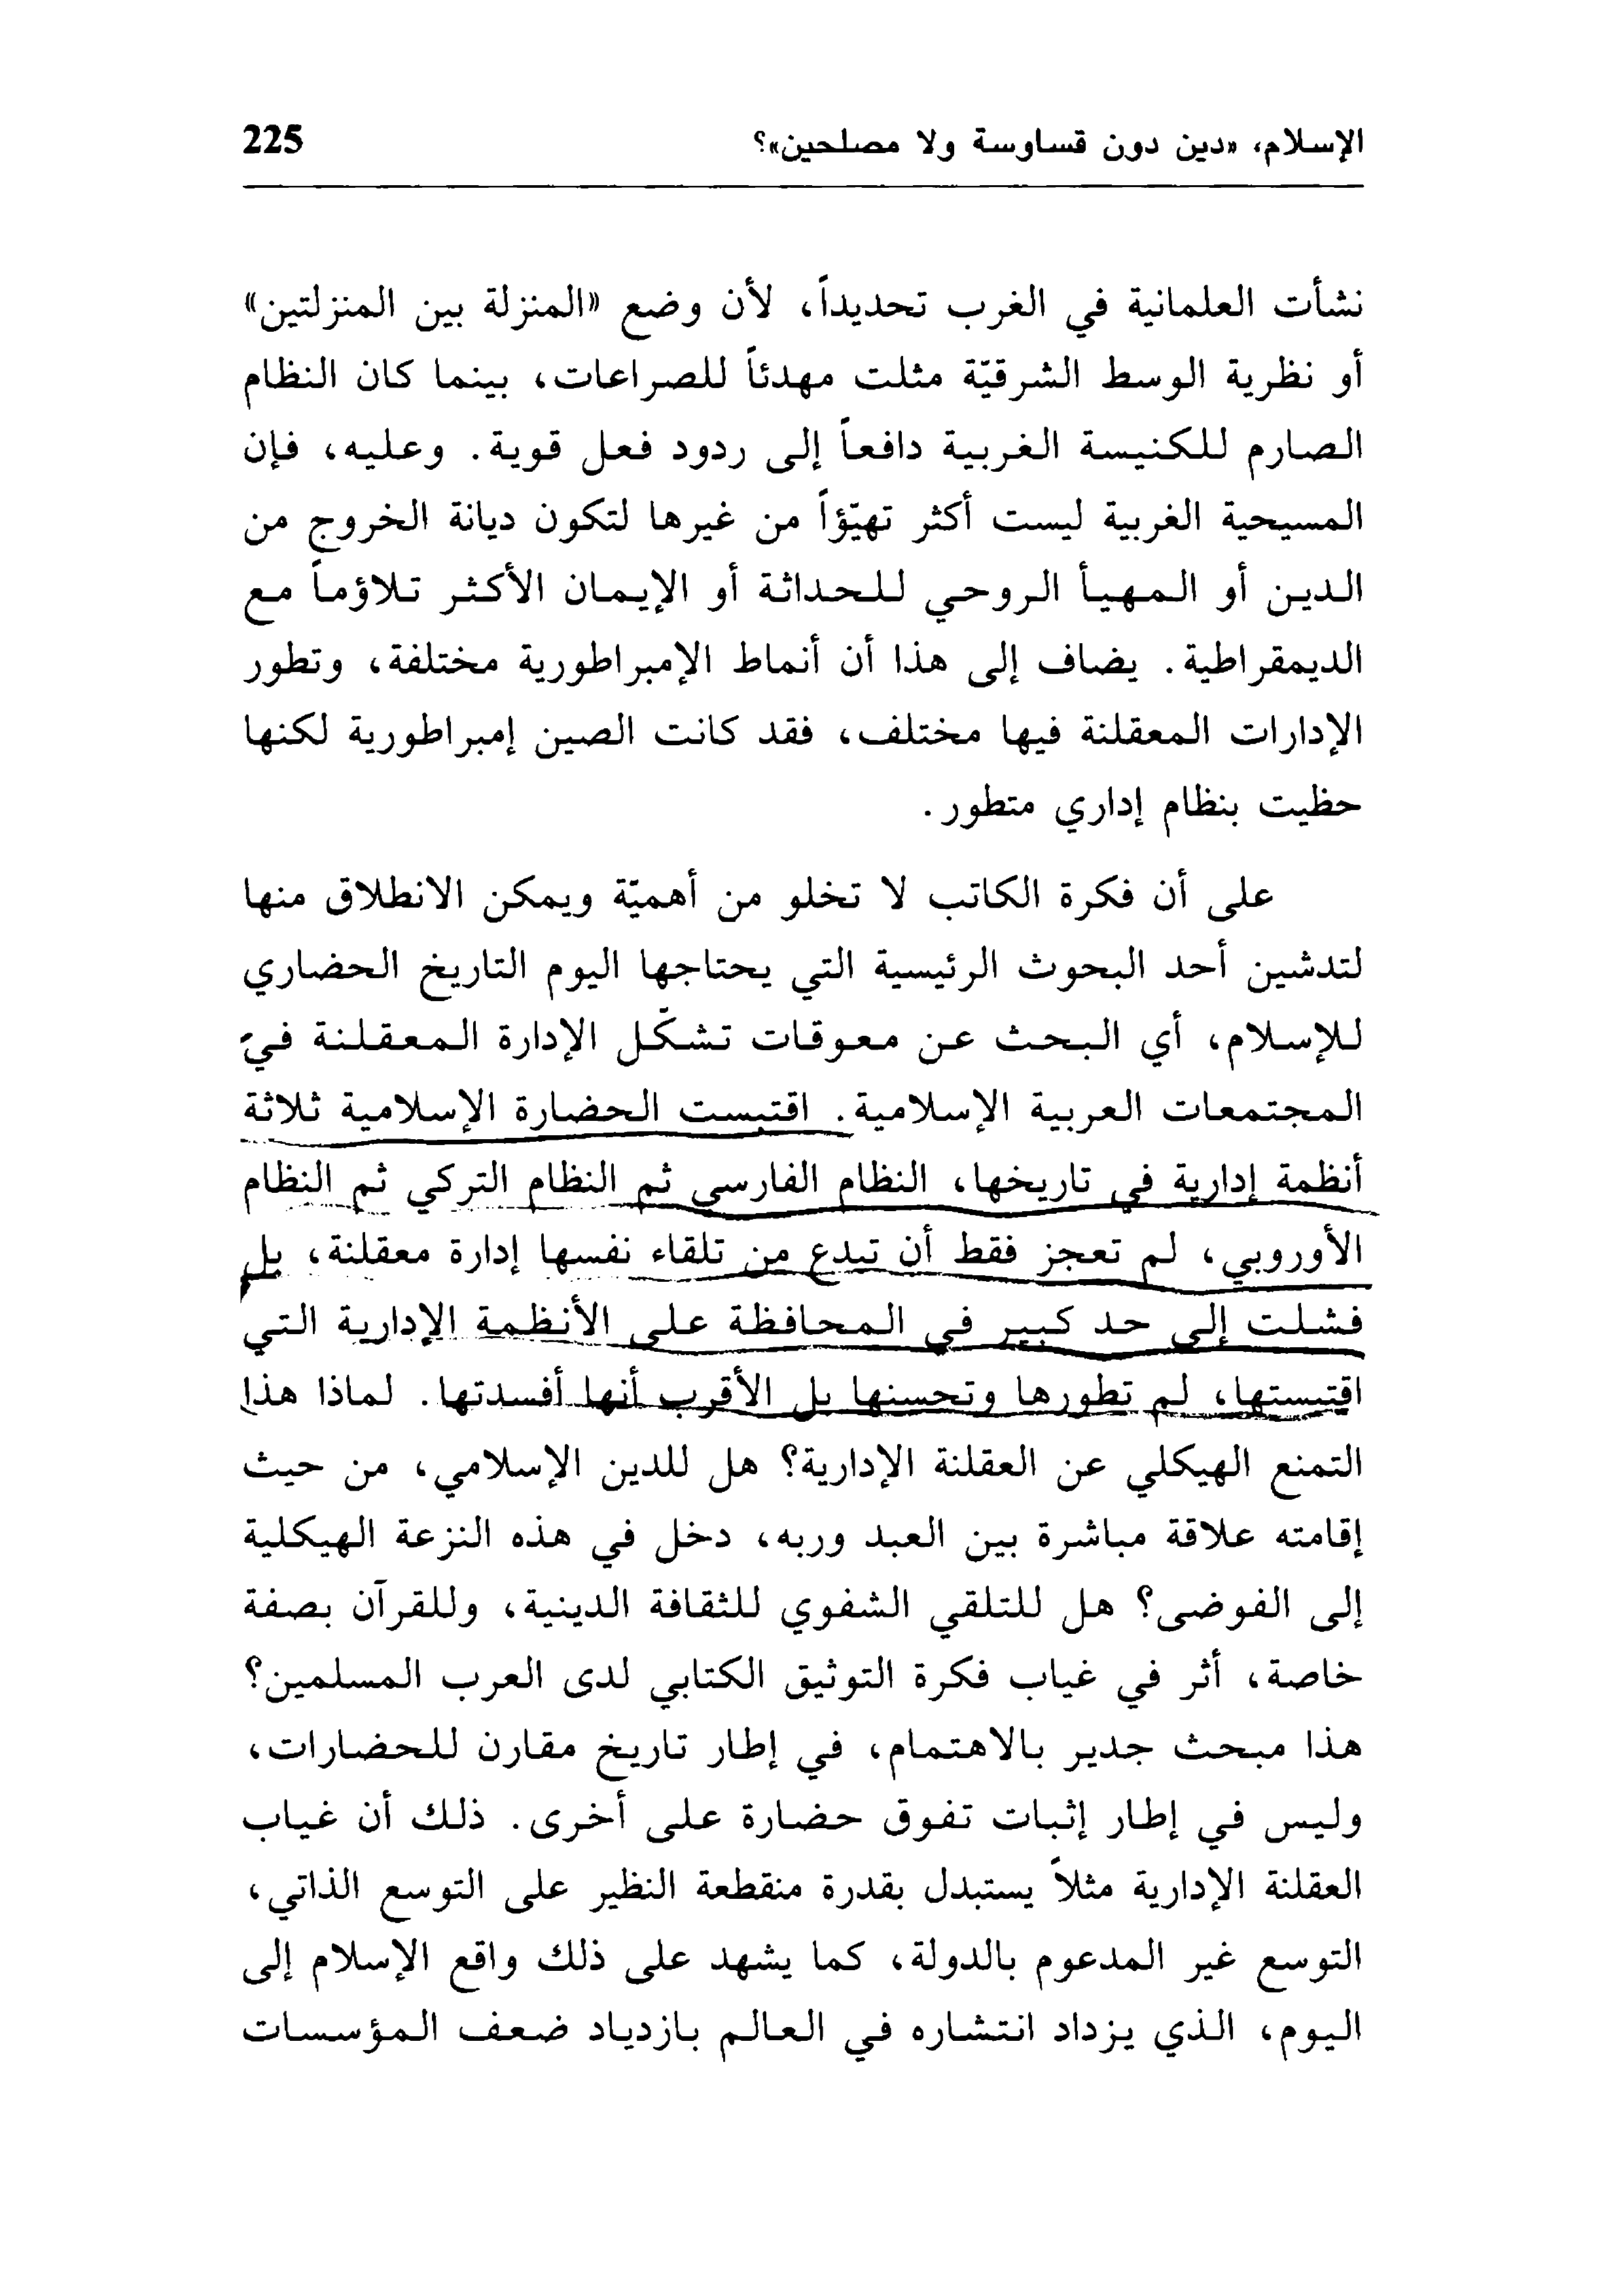 الإسلام، «دين دون قساوسة ولا مصلحين»؟ 225
نشأت العلمانية في الغرب تحديداً، لأن وضع «المنزلة بين المنزلتين»
أو نظرية الوسط الشرقيّة مثلت مهدئاً للصراعات، بينما كان النظام
الصارم للكنيسة الغربية دافعاً إلى ردود فعل قوية. وعليه، فإن
المسيحية الغربية ليست أكثر تهيّؤاً من غيرها لتكون ديانة الخروج من
الدين أو المهيأ الروحي للحداثة أو الإيمان الأكثر تلاؤماً مع
الديمقراطية. يضاف إلى هذا أن أنماط الإمبراطورية مختلفة، وتطور
الإدارات المعقلنة فيها مختلف، فقد كانت الصين إمبراطورية لكنها
حظيت بنظام إداري متطور.
على أن فكرة الكاتب لا تخلو من أهميّة ويمكن الانطلاق منها
لتدشين أحد البحوث الرئيسية التي يحتاجها اليوم التاريخ الحضاري
للإسلام، أي البحث عن معوقات تشكّل الإدارة المعقلنة في
المجتمعات العربية الإسلامية. اقتبست الحضارة الإسلامية ثلاثة
أنظمة إدارية في تاريخها، النظام الفارسي ثم النظام التركي ثم النظام
الأوروبي، لم تعجز فقط أن تبدع من تلقاء نفسها إدارة معقلنة، بل
فشلت إلى حد كبير في المحافظة على الأنظمة الإدارية التي
اقتبستها، لم تطورها وتحسنها بل الأقرب أنها أفسدتها. لماذا هذا
التمنع الهيكلي عن العقلنة الإدارية؟ هل للدين الإسلامي، من حيث
إقامته علاقة مباشرة بين العبد وربه، دخل في هذه النزعة الهيكلية
إلى الفوضى؟ هل للتلقي الشفوي للثقافة الدينية، وللقرآن بصفة
خاصة، أثر في غياب فكرة التوثيق الكتابي لدى العرب المسلمين؟
هذا مبحث جدير بالاهتمام، في إطار تاريخ مقارن للحضارات،
وليس في إطار إثبات تفوق حضارة على أخرى. ذلك أن غياب
العقلنة الإدارية مثلاً يستبدل بقدرة منقطعة النظير على التوسع الذاتي،
التوسع غير المدعوم بالدولة، كما يشهد على ذلك واقع الإسلام إلى
اليوم، الذي يزداد انتشاره في العالم بازدياد ضعف المؤسسات